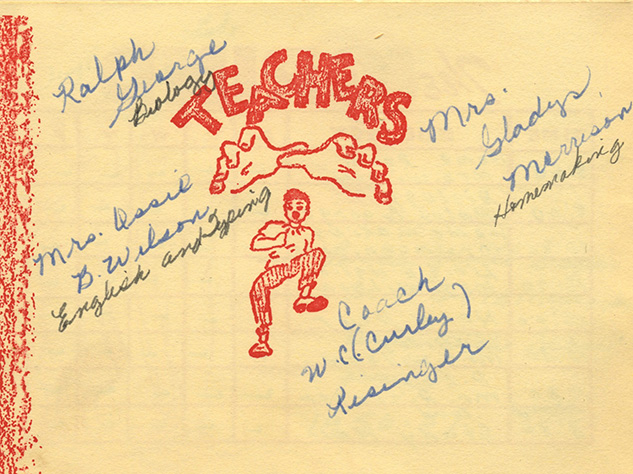 TEACHERS
Ralph
George
Biology
Mrs.
Gladys
Morrison
Homemaking
Mrs. Ossie
B. Wilson
English and Typing
Coach
W.C. (Curley)
Kisinger